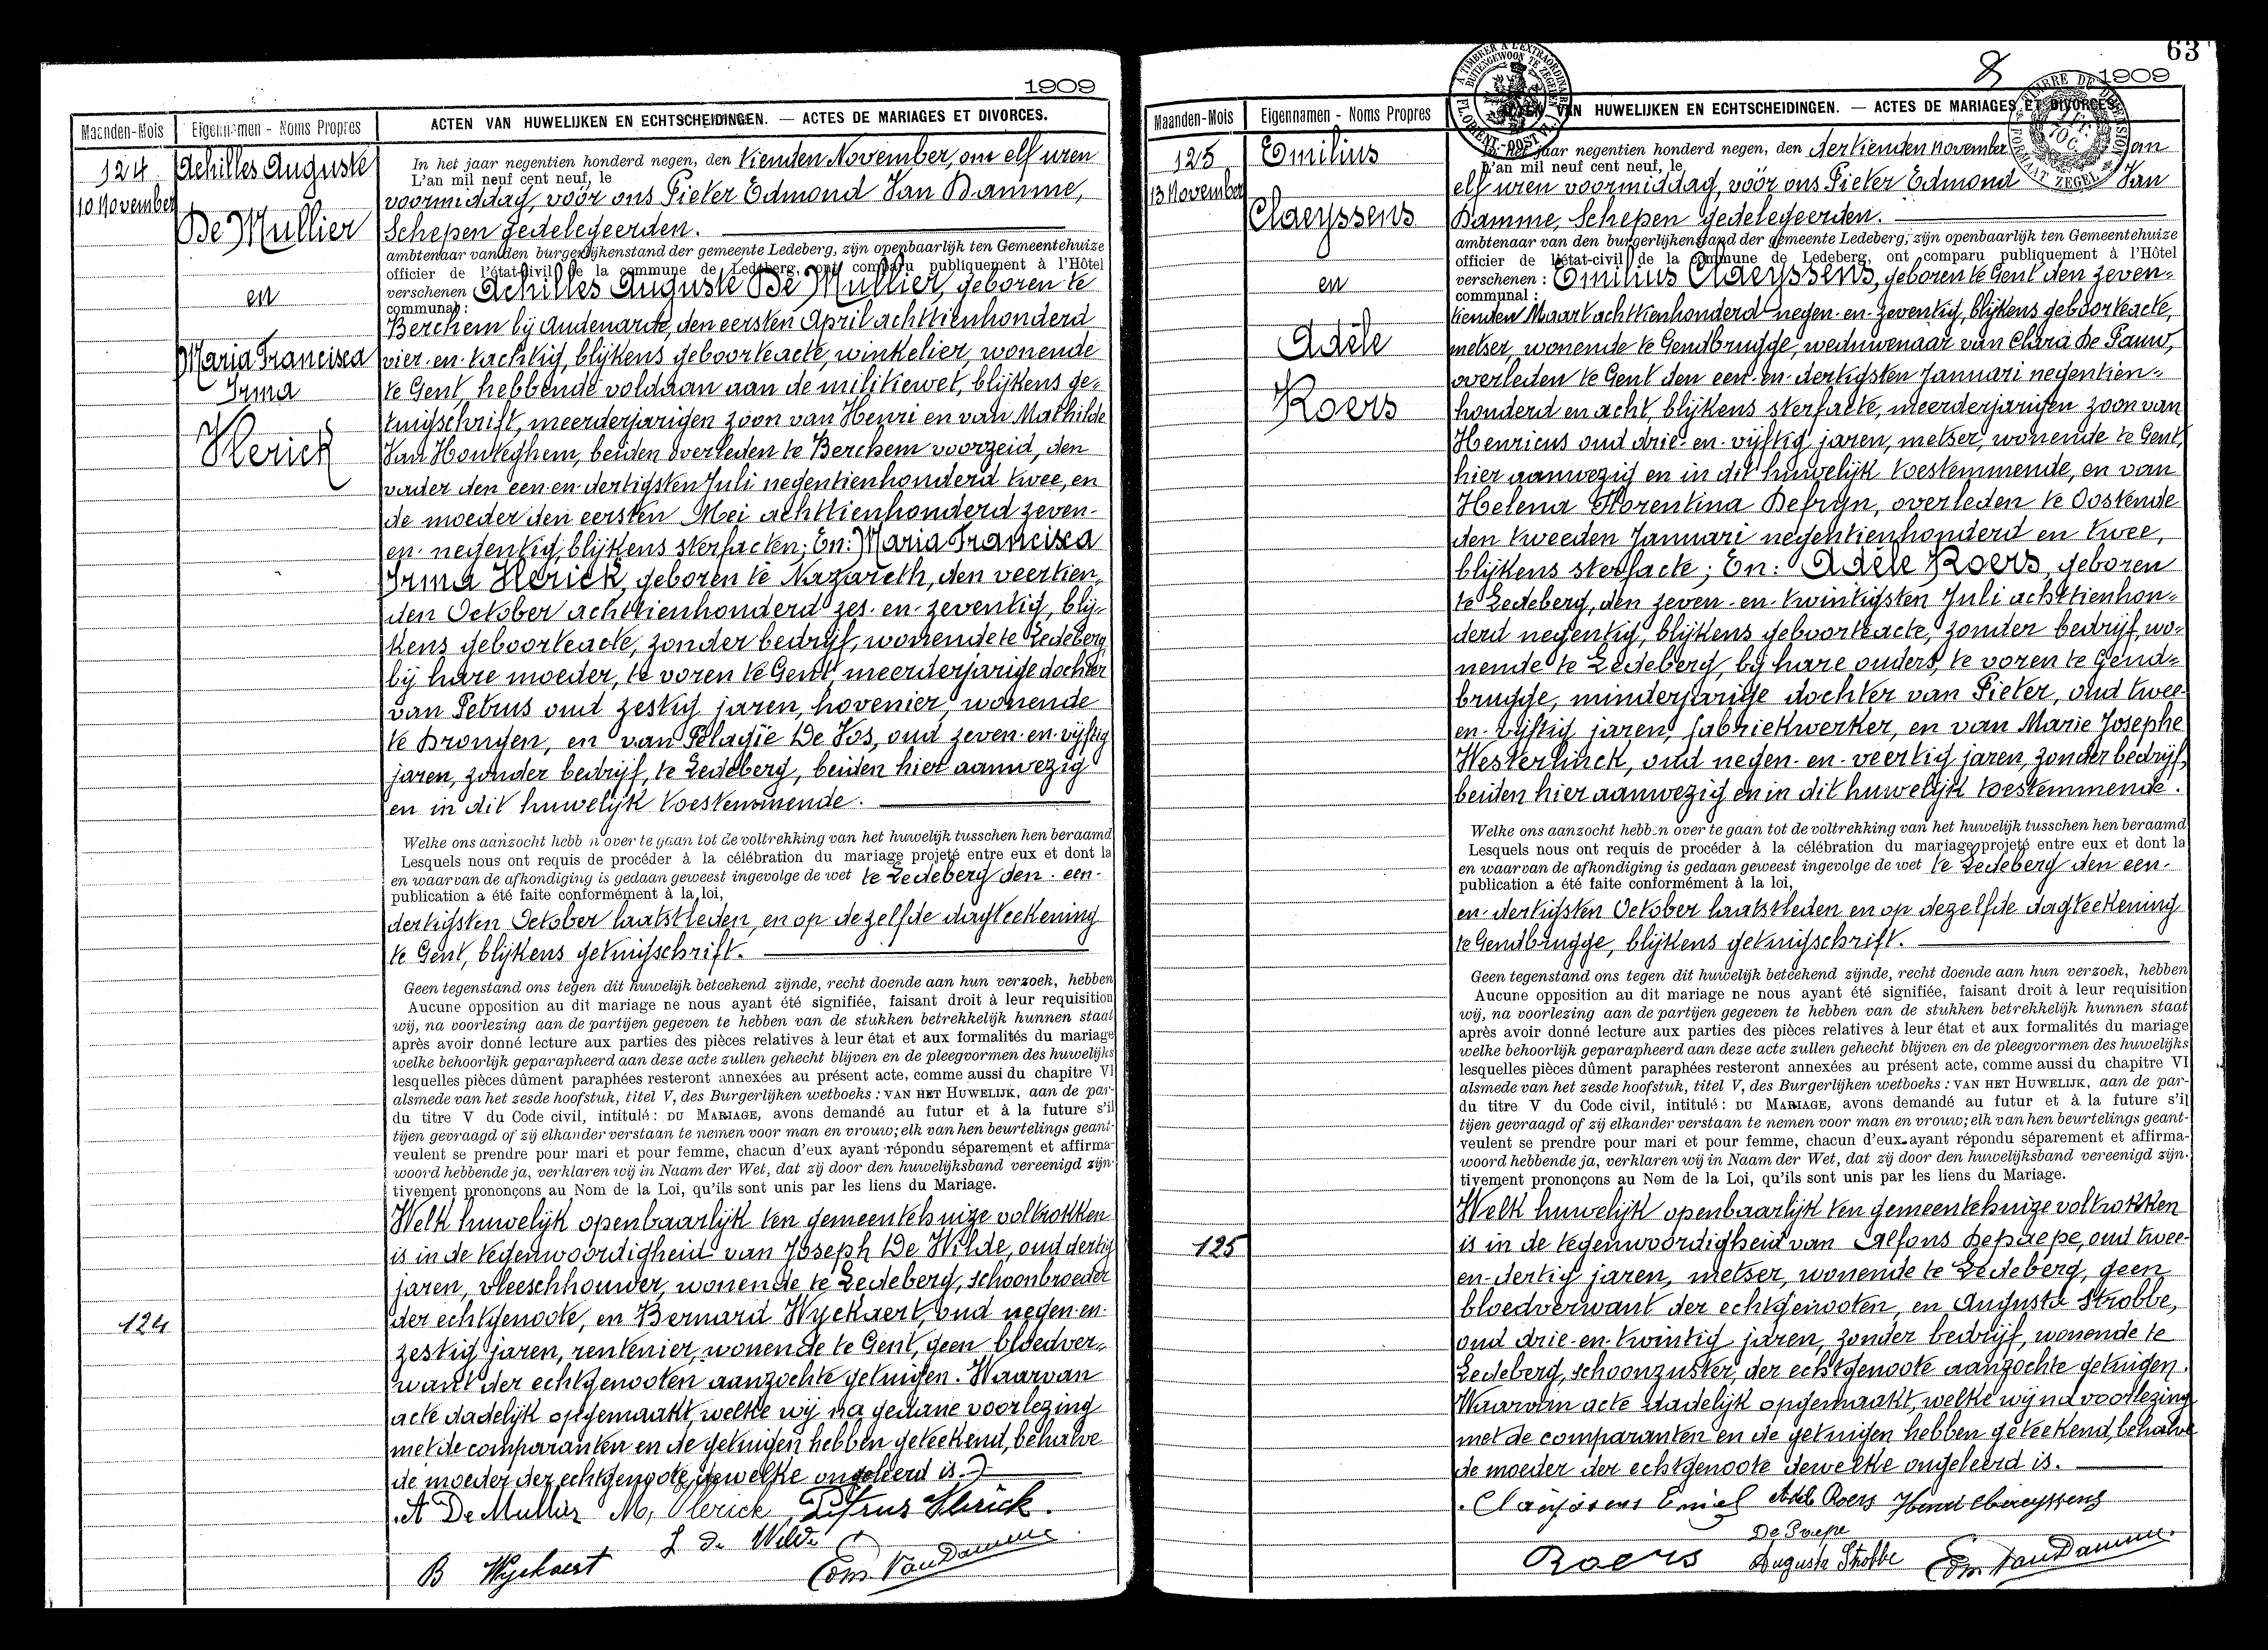 1909
Maanden-Mois
Eigennamen - Noms Propres
ACTEN VAN HUWELIJKEN EN ECHTSCHEIDINGEN. — ACTES DE MARIAGES ET DIVORCES.
124
10 November
Achilles Auguste
De Mullier
en
Maria Francisca
Irma
Herick
In het jaar negentien honderd negen, den tienden November, om elf uren
L'an mil neuf cent neuf, le
voormiddag, vóór ons Pieter Edmond Van Damme,
Schepen gedelegeerden.
ambtenaar van den burgerlijkenstand der gemeente Ledeberg, zijn openbaarlijk ten Gemeentehuize
officier de l'état-civil de la commune de Ledeberg, ont comparu publiquement à l'Hôtel
verschenen Achilles Auguste De Mullier, geboren te
communal:
Berchem bij Audenarde, den eersten April achttienhonderd
vier-en-tachtig, blijkens geboorteacte, winkelier, wonende
te Gent, hebbende voldaan aan de militiewet, blijkens ge-
tuigschrift, meerderjarigen zoon van Henri en van Mathilde
Van Houteghem, beiden overleden te Berchem voorzeid, den
vader den een en dertigsten Juli negentienhonderd twee, en
de moeder den eersten Mei achttienhonderd zeven-
en-negentig, blijkens sterfacten; En: Maria Francisca
Irma Herick, geboren te Nazareth, den veertien-
den October achttienhonderd zes-en-zeventig, blij-
kens geboorteacte, zonder bedrijf, wonende te Ledeberg,
bij hare moeder, te voren te Gent, meerderjarige dochter
van Petrus oud zestig jaren, hovenier, wonende
te Drongen, en van Pelagie De Vos, oud zeven-en-vijftig
jaren, zonder bedrijf, te Ledeberg, beiden hier aanwezig
en in dit huwelijk toestemmende.
Welke ons aanzocht hebb n over te gaan tot de voltrekking van het huwelijk tusschen hen beraamd
Lesquels nous ont requis de procéder à la célébration du mariage projeté entre eux et dont la
en waarvan de afkondiging is gedaan geweest ingevolge de wet te Ledeberg den een-
publication a été faite conformément à la loi,
dertigsten October laatstleden, en op dezelfde dagteekening
te Gent, blijkens getuigschrift.
Geen tegenstand ons tegen dit huwelijk beteekend zijnde, recht doende aan hun verzoek, hebben
Aucune opposition au dit mariage ne nous ayant été signifiée, faisant droit à leur requisition
wij, na voorlezing aan de partijen gegeven te hebben van de stukken betrekkelijk hunnen staat
après avoir donné lecture aux parties des pièces relatives à leur état et aux formalités du mariage
welke behoorlijk geparapheerd aan deze acte zullen gehecht blijven en de pleegvormen des huwelijks
lesquelles pièces dûment paraphées resteront annexées au présent acte, comme aussi du chapitre VI
alsmede van het zesde hoofstuk, titel V, des Burgerlijken wetboeks : VAN HET HUWELIJK, aan de par-
du titre V du Code civil, intitulé : DU MARIAGE, avons demandé au futur et à la future s'il
tijen gevraagd of zij elkander verstaan te nemen voor man en vrouw; elk van hen beurtelings geant-
veulent se prendre pour mari et pour femme, chacun d'eux ayant répondu séparement et affirma-
woord hebbende ja, verklaren wij in Naam der Wet, dat zij door den huwelijksband vereenigd zijn.
tivement prononçons au Nom de la Loi, qu'ils sont unis par les liens du Mariage.
Welk huwelijk openbaarlijk ten gemeentehuize voltrokken
is in de tegenwoordigheid van Joseph De Wilde, oud dertig
jaren, vleeschhouwer, wonende te Ledeberg, schoonbroeder
der echtgenoote, en Bernard Wyckaert, oud negen-en-
124
zestig jaren, rentenier, wonende te Gent, geen bloedver-
want der echtgenooten aanzochte getuigen. Waarvan
acte dadelijk opgemaakt, welke wij na gedane voorlezing
met de comparanten en de getuigen hebben geteekend, behalve
de moeder der echtgenoote, dewelke ongeleerd is.
A De Mullier M, Herick Petrus Herick.
J de Wilde
B Wyckaert Edm. VanDamme
63
8
1909
Maanden-Mois
Eigennamen - Noms Propres
VAN HUWELIJKEN EN ECHTSCHEIDINGEN. — ACTES DE MARIAGES ET DIVORCES.
125
13 November
Emilius
Claeyssens
en
Adèle
Roers
jaar negentien honderd negen, den dertienden november om
L'an mil neuf cent neuf, le
elf uren voormiddag, vóór ons Pieter Edmond Van
Damme, Schepen gedelegeerden.
ambtenaar van den burgerlijkenstand der gemeente Ledeberg, zijn openbaarlijk ten Gemeentehuize
officier de l'état-civil de la commune de Ledeberg, ont comparu publiquement à l'Hôtel
verschenen : Emilius Claeyssens, geboren te Gent den zeven-
communal :
tienden Maart achttienhonderd negen-en-zeventig, blijkens geboorteacte,
metser, wonende te Gendbrugge, weduwenaar van Clara De Pauw,
overleden te Gent den een-en-dertigsten Januari negentien-
honderd en acht, blijkens sterfacte, meerderjarigen zoon van
Henricus oud drie-en-vijftig jaren, metser, wonende te Gent,
hier aanwezig en in dit huwelijk toestemmende, en van
Helena Florentina Defryn, overleden te Oostende
den tweeden Januari negentienhonderd en twee,
blijkens sterfacte; En: Adèle Roers, geboren
te Ledeberg, den zeven-en-twintigsten Juli achttienhon-
derd negentig, blijkens geboorteacte, zonder bedrijf, wo-
nende te Ledeberg, bij hare ouders, te voren te Gend-
brugge, minderjarige dochter van Pieter, oud twee
en-vijftig jaren, fabriekwerker, en van Marie Josephe
Westerlinck, oud negen-en-veertig jaren, zonder bedrijf,
beiden hier aanwezig en in dit huwelijk toestemmende.
Welke ons aanzocht hebben over te gaan tot de voltrekking van het huwelijk tusschen hen beraamd
Lesquels nous ont requis de procéder à la célébration du mariage projeté entre eux et dont la
en waarvan de afkondiging is gedaan geweest ingevolge de wet te Ledeberg den een-
publication a été faite conformément à la loi,
en-dertigsten October laatstleden en op dezelfde dagteekening
te Gendbrugge, blijkens getuigschrift.
Geen tegenstand ons tegen dit huwelijk beteekend zijnde, recht doende aan hun verzoek, hebben
Aucune opposition au dit mariage ne nous ayant été signifiée, faisant droit à leur requisition
wij, na voorlezing aan de partijen gegeven te hebben van de stukken betrekkelijk hunnen staat
après avoir donné lecture aux parties des pièces relatives à leur état et aux formalités du mariage
welke behoorlijk geparapheerd aan deze acte zullen gehecht blijven en de pleegvormen des huwelijks
lesquelles pièces dûment paraphées resteront annexées au présent acte, comme aussi du chapitre VI
alsmede van het zesde hoofstuk, titel V, des Burgerlijken wetboeks : VAN HET HUWELIJK, aan de par-
du titre V du Code civil, intitulé : DU MARIAGE, avons demandé au futur et à la future s'il
tijen gevraagd of zij elkander verstaan te nemen voor man en vrouw; elk van hen beurtelings geant-
veulent se prendre pour mari et pour femme, chacun d'eux ayant répondu séparement et affirma-
woord hebbende ja, verklaren wij in Naam der Wet, dat zij door den huwelijksband vereenigd zijn.
tivement prononçons au Nom de la Loi, qu'ils sont unis par les liens du Mariage.
Welk huwelijk openbaarlijk ten gemeentehuize voltrokken
125
is in de tegenwoordigheid van Alfons Depaepe, oud twee-
en-dertig jaren, metser, wonende te Ledeberg, geen
bloedverwant der echtgenooten, en Augusta Strobbe,
oud drie-en-twintig jaren, zonder bedrijf, wonende te
Ledeberg, schoonzuster der echtgenoote aanzochte getuigen.
Waarvan acte dadelijk opgemaakt, welke wij na voorlezing
met de comparanten en de getuigen hebben geteekend, behalve
de moeder der echtgenoote dewelke ongeleerd is.
Claeyssens Emiel Adele Roers Henri Claeyssens
De Paepe
Roers Augusta Strobbe Edm. VanDamme.